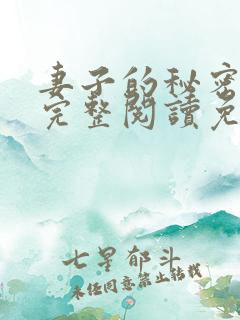 妻子的秘密
完整阅读免
七星郁斗
未经同意禁止转载